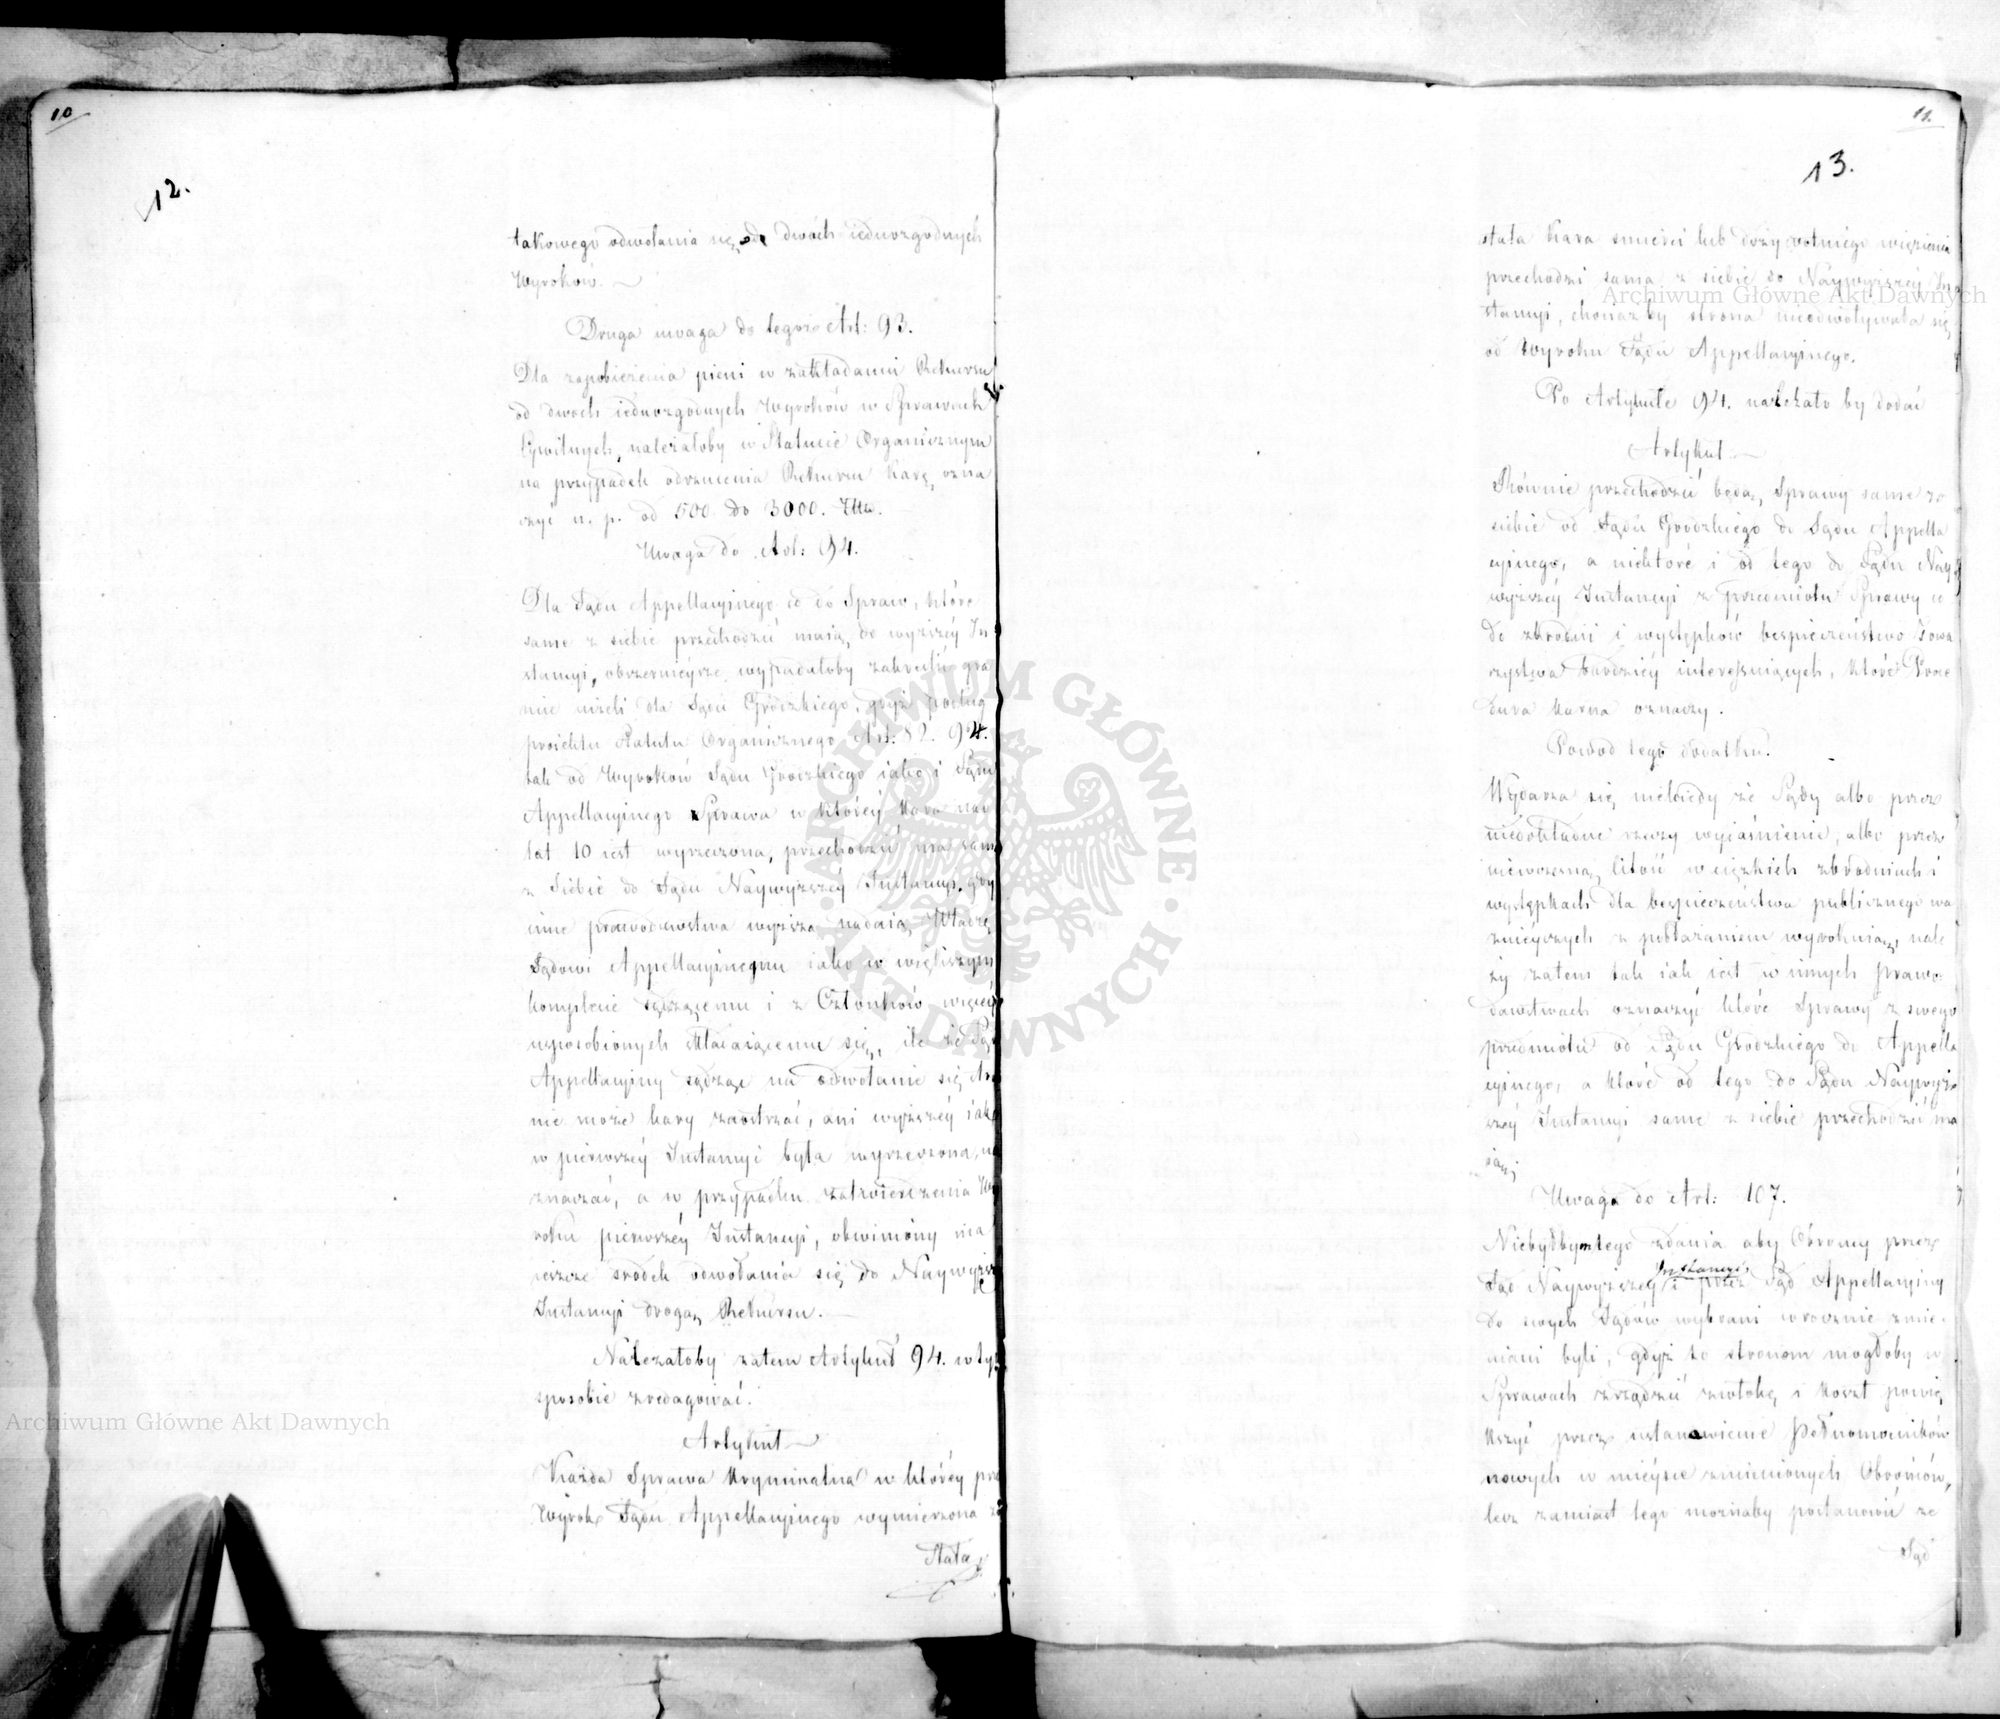 10
12.
takowego odwołania się od dwóch iednozgodnych
Wyroków.
Druga uwaga do tegoż Art: 93.
Dla zapobieżenia pieni w zakładaniu Rekursu
od dwóch iednozgodnych Wyroków w Sprawach
Cywilnych, należałoby w Statucie Organicznym
na przypadek odrzucenia Rekursu karę ozna
czyć n. p. od 500 do 3000. Złtt.
Uwaga do Art: 94.
Dla Sądu Appellacyinego co do Spraw, które
same z siebie przechodzić maią do wyższéy In
stancyi, obszernieysze wypadałoby zakreślić gra
nice niżeli dla Sądu Grodzkiego, gdyż podług
proiektu Statutu Organicznego Art: 82. 94.
tak od Wyroków Sądu Grodzkiego iako i Sądu
Appellacyinego Sprawa w któréy kara nad
lat 10 iest wyrzeczona, przechodzić ma sama
z Siebie do Sądu Naywyższéy Instancyi, gdy
inne prawodawstwa wyższą nadaią Władzę
Sądowi Appellacyinemu iako w większym
komplecie sądzącemu i z Członków więcéy
usposobionych składaiącemu się, ile że Sąd
Appellacyiny sądząc na odwołanie się
nie może kary zaostrzać, ani wyższéy iak
w pierwszéy Instancyi była wyrzeczona,
znaczać, a w przypadku zatwierdzenia Wy
roku pierwszéy Instancyi, obwiniony ma
ieszcze srodek odwołania się do Naywyższ
Instancyi drogą Rekursu.
Należałoby zatem Artykuł 94. w ty
sposobie zredagować.
Artykuł
Każda Sprawa kryminalna w któréy prz
Wyrok Sądu Appellacyinego wymierzona zo
stała
11.
13.
stała kara smierci lub dożywotniego więzienia
przechodzi sama z siebie do Naywyższéy In
stancyi, chociażby strona nieodwoływała się
od Wyroku Sądu Appellacyinego.
Po Artykule 94. należało by dodać
Artykuł
Równie przechodzić będą Sprawy same ze
siebie od Sądu Grodzkiego do Sądu Appella
cyinego, a niektóre i od tego do Sądu Nay
wyższéy Instancyi z przedmiotu Sprawy co
do zbrodni i występków bespieczeństwo Towa
rzystwa bardziey interessuiących, które Proce
dura karna oznaczy.
Powód tego dodatku.
Wydarza się niekiedy że Sądy albo przez
niedokładne rzeczy wyiaśnienie, albo przez
niewczesną litość w ciężkich zbrodniach i
występkach dla bespieczeństwa publicznego wa
żnieyszych z pobłażaniem wyrokuią, nale
ży zatem tak iak iest w innych prawo
dawstwach oznaczyć które Sprawy z swego
przedmiotu od Sądu Grodzkiego do Appella
cyinego, a które od tego do Sądu Naywyż
széy Instancyi same z siebie przechodzić ma
ią;
Uwaga do Art: 107.
Niebyłbym tego zdania aby Obrońcy przez
Instancyi
Sąd Naywyższéy i przez Sąd Appellacyiny
do swych Sądów wybrani w rocznie zmie
niani byli, gdyż to stronom mogłoby w
Sprawach zrządzić zwłokę i koszt powię
kszyć przez ustanowienie Pełnomocników
nowych w mieysce zmienionych Obrońców,
lecz zamiast tego możnaby postanowić że
Sąd
Archiwum Główne Akt Dawnych
Archiwum Główne Akt Dawnych
ARCHIWUM GŁÓWNE · AKT DAWNYCH ·